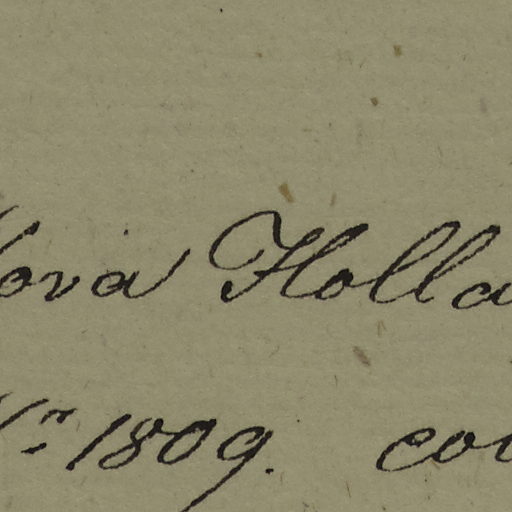 Nova Holla
Nr. 1809. co